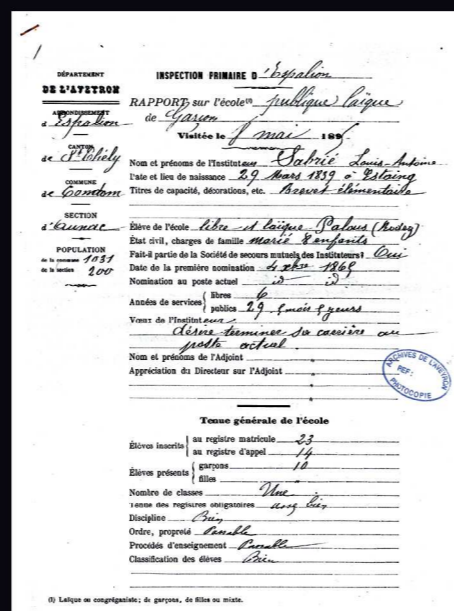 1
DÉPARTEMENT
DE L'AVEYRON
ARRONDISSEMENT
d'Espalion
CANTON
de St Chély
COMMUNE
de Condom
SECTION
d'Aunac
POPULATION
de la commune 1031
de la section 200
INSPECTION PRIMAIRE D'Espalion
RAPPORT sur l'école (1) publique laïque
de Garçon
Visitée le mai 189
Nom et prénoms de l'Instituteur Sabrié Louis-Antoine
Date et lieu de naissance 29 Mars 1839 à Estaing
Titres de capacité, décorations, etc. Brevet élémentaire
Élève de l'école libre et laïque Palous (Rodez)
État civil, charges de famille marié enfants
Fait-il partie de la Société de secours mutuels des Instituteurs? Oui
Date de la première nomination 4 xbre 1865
Nomination au poste actuel id id
Années de services libres 6
publics 29 mois jours
Vœux de l'Instituteur
désire terminer sa carrière au
poste actuel
Nom et prénoms de l'Adjoint
Appréciation du Directeur sur l'Adjoint
ARCHIVES DE L'AVEYRON
REF:
PHOTOCOPIE
Tenue générale de l'école
Élèves inscrits au registre matricule 23
au registre d'appel 14
Élèves présents garçons 10
filles
Nombre de classes Une
Tenue des registres obligatoires assez bien
Discipline Bien
Ordre, propreté Passable
Procédés d'enseignement Passable
Classification des élèves Bien
(1) Laïque ou congréganiste; de garçons, de filles ou mixte.